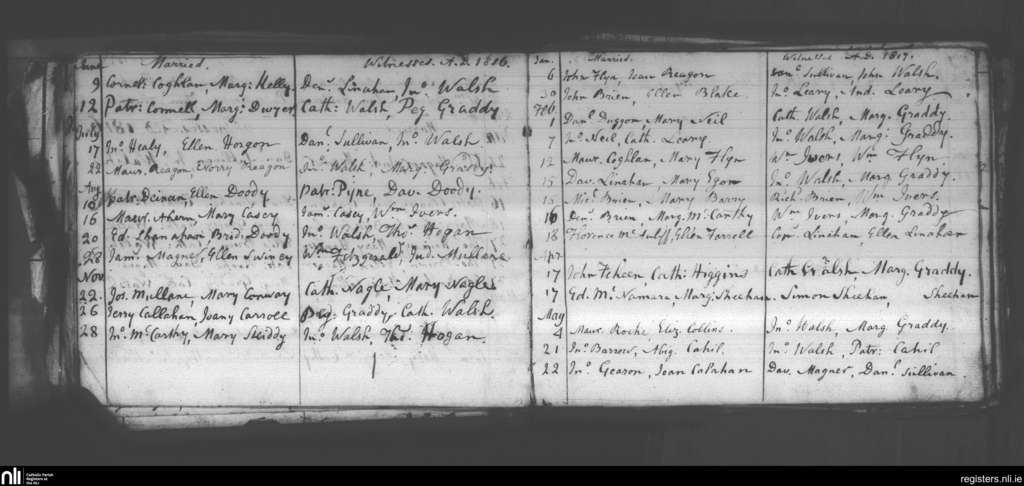 June Married. Witnesses. A.D. 1816.
9 Cornel: Coghlan, Marg: Kelley Den: Linahan Jno: Walsh
12 Patr: Connell, Marg: Dwyer Cath: Walsh, Peg Graddy
July
17 Jno: Healy, Ellen Horgon Danl. Sullivan, Jno: Walsh
22 Maur. Reagon, Norry Reagon Jno: Walsh, Marg: Graddy
Aug
10 Patr: Deinan, Ellen Doody Patr: Pyne, Dav: Doody.
16 Maur. Ahern, Mary Casey Jam: Casey, Wm Ivers.
20 Ed. Shanahan Brid: Doody Jno: Walsh, Thos. Hogan
28 Jam: Magner, Ellen Swiney Wm Fitzgerald, Jud. Mullane
Nov
22 Jos. Mullane, Mary Conway Cath. Nagle, Mary Nagle
26 Jerry Callahan, Joany Carroll Peg: Graddy, Cath. Walsh.
28 Jno. McCarthy, Mary Skiddy Jno: Walsh, Thos. Hogan.
Jan. Married. Witnesses A.D. 1817.
6 John Flyn, Joan Reagon Sullivan, John Walsh.
30 John Brien, Ellen Blake Jno: Leary, And. Leary
Feb
1 Danl. Duggon, Mary Neil Cath. Walsh, Marg. Graddy.
7 Jno: Neil, Cath. Leary Jno: Walsh, Marg: Graddy.
12 Maur. Coghlan, Mary Flyn Wm Ivers, Wm Flyn.
15 Dav. Linahan, Mary Egon Jno. Walsh, Marg Graddy.
15 Mic: Brien, Mary Barry Rich: Brien, Wm Ivers.
16 Den: Brien, Marg. McCarthy Wm Ivers, Marg. Graddy
18 Florence Ellen Farrell Con: Linahan, Ellen Linahan
Apr
17 John Feheen, Cath: Higgins Cath Walsh Marg. Graddy.
17 Ed. McNamara Marg: Sheehan. Simon Sheehan, Sheehan
May
4 Maur. Roche, Eliz. Collins. Jno: Walsh, Marg Graddy.
21 Jno: Barrow, Abig. Cahil. Jno: Walsh, Patr: Cahil
22 Jno. Gearon, Joan Calahan Dav. Magner, Danl. Sullivan
nli Catholic Parish Registers at the NLI
registers.nli.ie